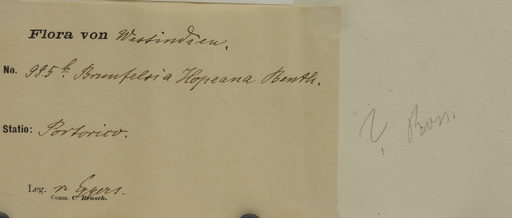 Flora von Westindien.
No. 995b. Brunfelsia Hopeana Benth.
Statio: Portorico.
Leg. v. Eggers.
Comm. C. Bensch.